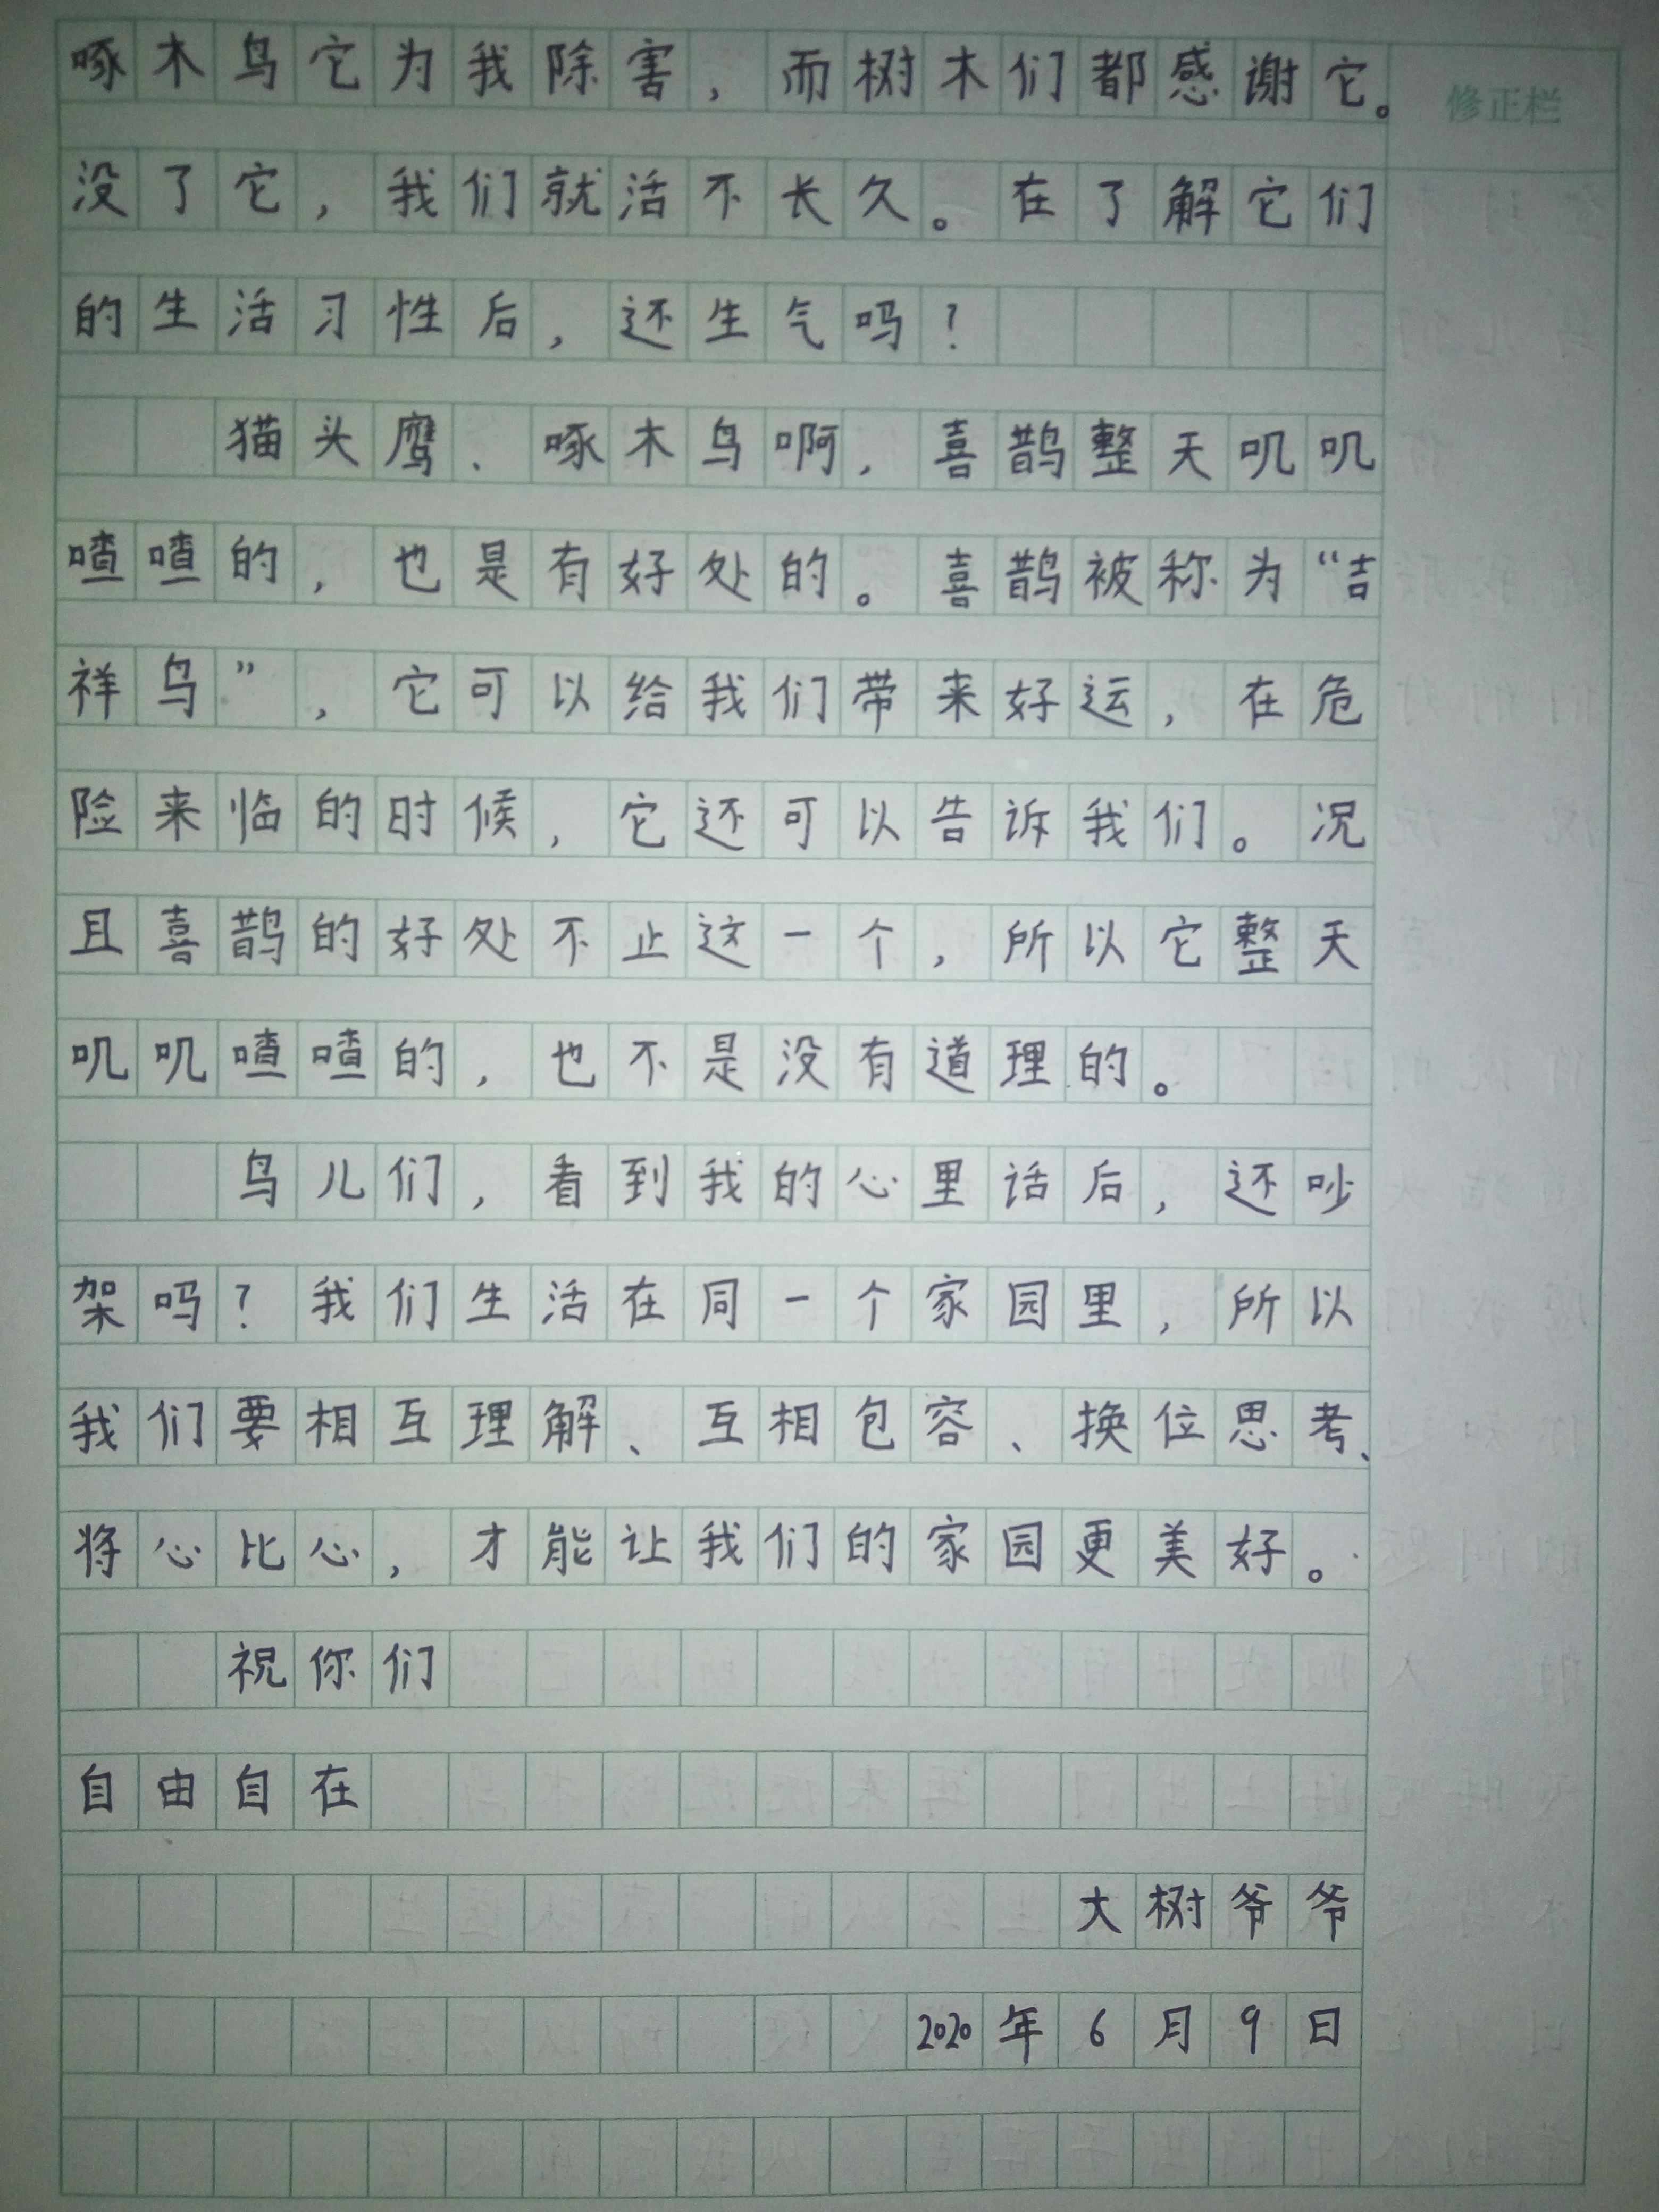 啄木鸟它为我除害，而树木们都感谢它。
修正栏
没了它，我们就活不长久。在了解它们
的生活习性后，还生气吗？
猫头鹰、啄木鸟啊，喜鹊整天叽叽
喳喳的，也是有好处的。喜鹊被称为“吉
祥鸟”，它可以给我们带来好运，在危
险来临的时候，它还可以告诉我们。况
且喜鹊的好处不止这一个，所以它整天
叽叽喳喳的，也不是没有道理的。
鸟儿们，看到我的心里话后，还吵
架吗？我们生活在同一个家园里，所以
我们要相互理解、互相包容、换位思考、
将心比心，才能让我们的家园更美好。
祝你们
自由自在
大树爷爷
2020年6月9日